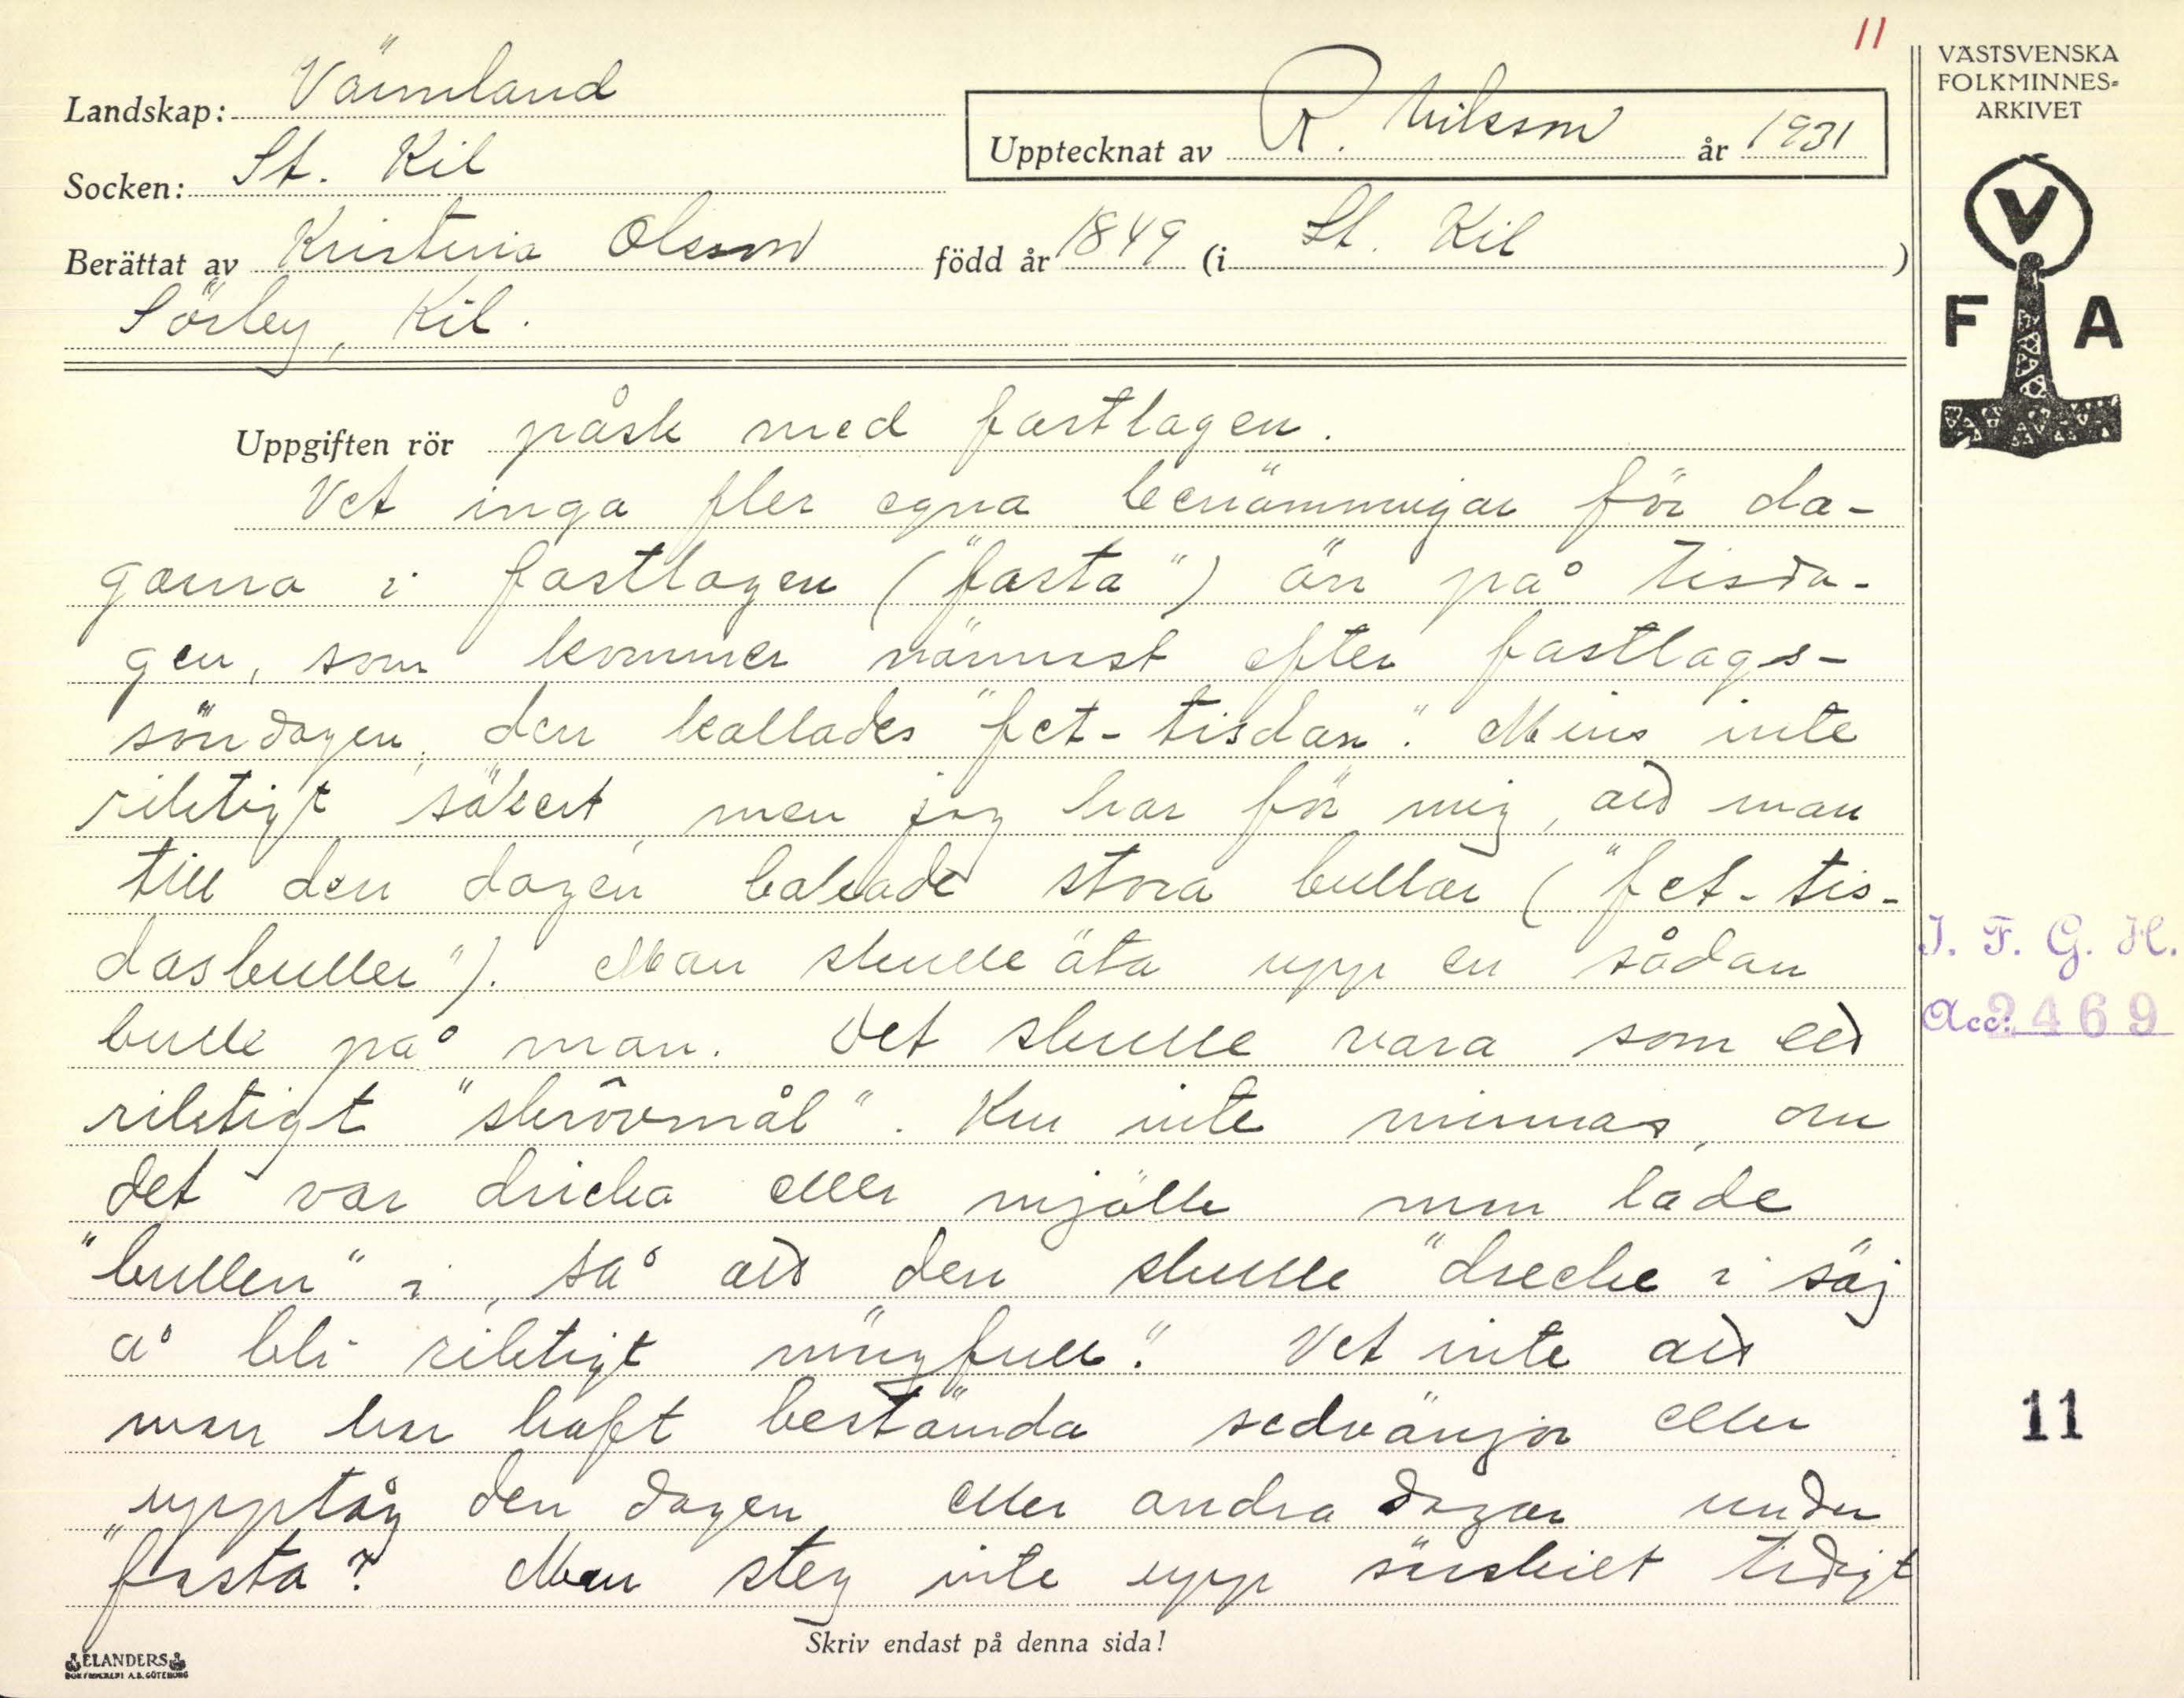 11
Landskap: Värmland
Upptecknat av R. Nilsson år 1931
Socken: St. Kil
Berättat av Kristina Olsson född år 1849 (i St. Kil )
Sörby, Kil.
VÄSTSVENSKA
FOLKMINNES-
ARKIVET
V
F A
Uppgiften rör påsk med fastlagen.
Vet inga fler egna benämningar för da-
garna i fastlagen ("fasta") än på tisda-
gen, som kommer närmast efter fastlags-
söndagen, den kallades "fet-tisdan". Mins inte
riktigt säkert, men jag har för mig, att man
till den dagen bakade stora bullar ("fet-tis-
dasbuller"). Man skulle äta upp en sådan
bulle på man. Det skulle vara som ett
riktigt "skrôvmål". Kan inte minnas, om
det var dricka eller mjölk man lade
"bullen" i, så att den skulle "drecke i säj
å bli riktigt műgfull". Vet inte att
man har haft bestämda sedvänjor eller
upptåg den dagen eller andra dagar under
"fasta". Man steg inte upp särskilt tidigt
I. F. G. H.
Acc: 2469
11
Skriv endast på denna sida!
ELANDERS
BOKTRYCKERI A.B. GÖTEBORG